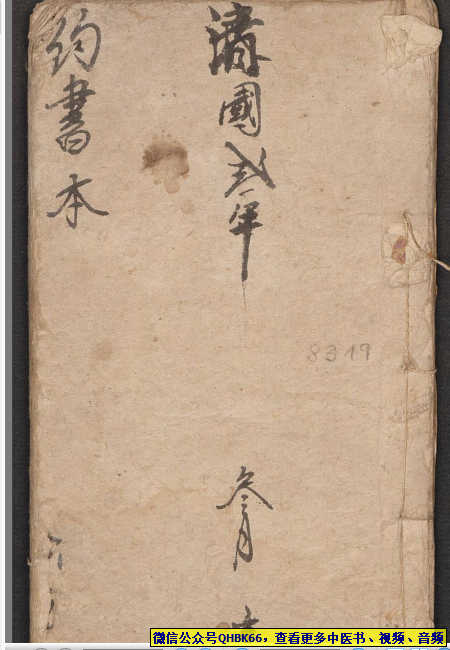 國貳年
叁月
約書本
8319
微信公众号QHBK66，查看更多中医书、视频、音频